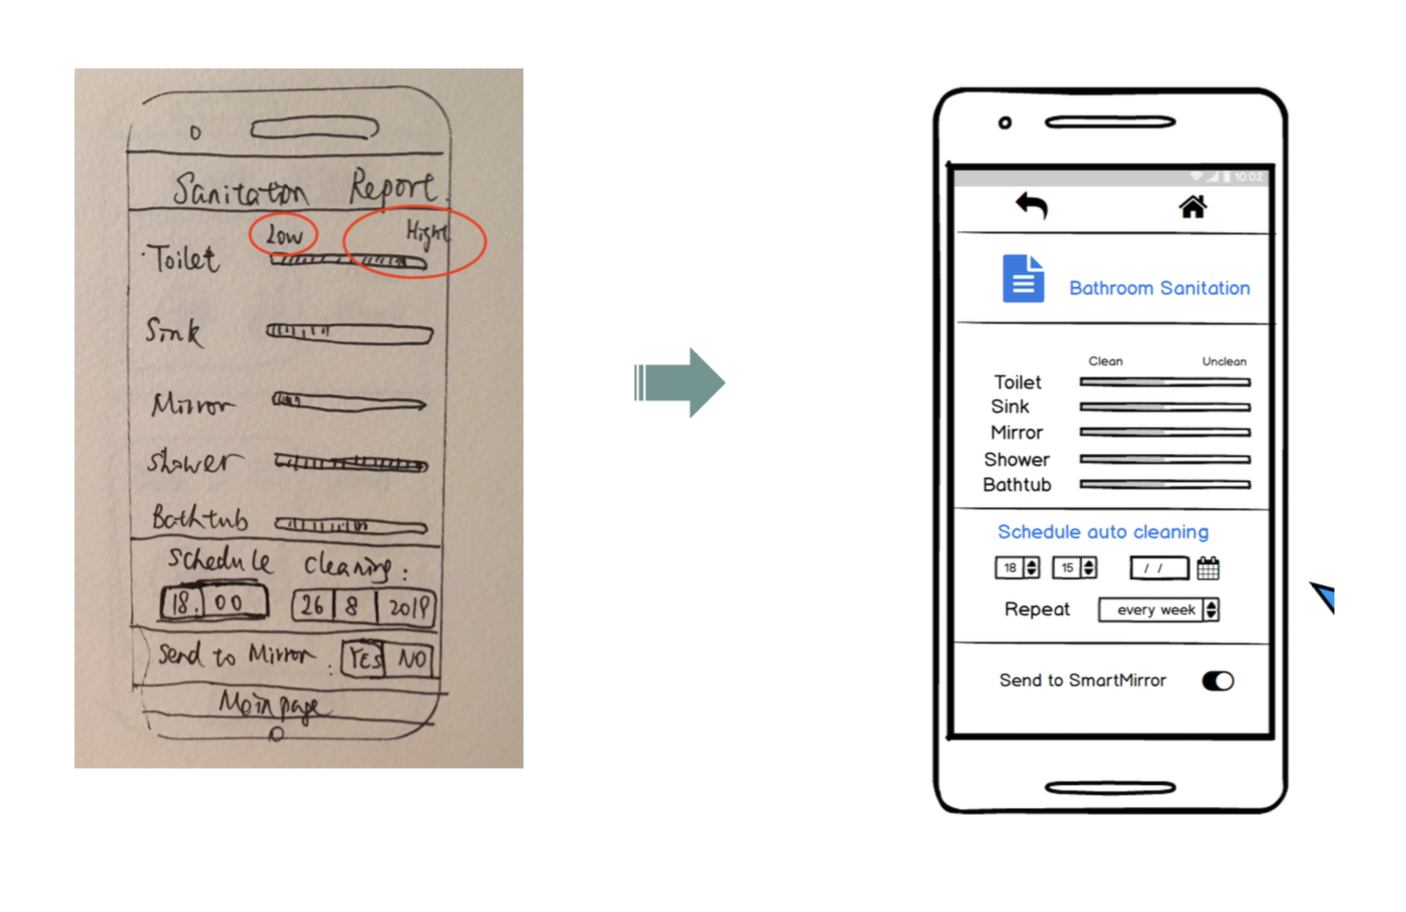 Sanitation Report.
Low Hight
Toilet
Sink
Mirror
Shower
Bathtub
Schedule cleaning:
18. 00 26 8 2019
Send to Mirror : YES NO
Main page
10:02
Bathroom Sanitation
Clean Unclean
Toilet
Sink
Mirror
Shower
Bathtub
Schedule auto cleaning
18 15 / /
Repeat every week
Send to SmartMirror